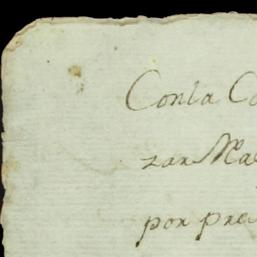 Con la Co
zar Ma
por pre